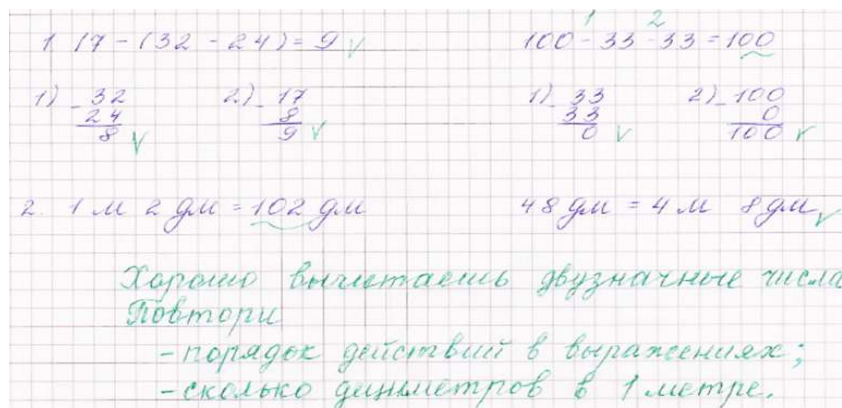 1. 17 - (32 - 24) = 9 √ 100 - 33 - 33 = 100
1 2
1) - 32 2) - 17 1) - 33 2) - 100
24 8 33 0
8 √ 9 √ 0 √ 100 √
2. 1 м 2 дм = 102 дм 48 дм = 4 м 8 дм √
Хорошо вычитаешь двузначные числа
Повтори
- порядок действий в выражениях;
- сколько дециметров в 1 метре.